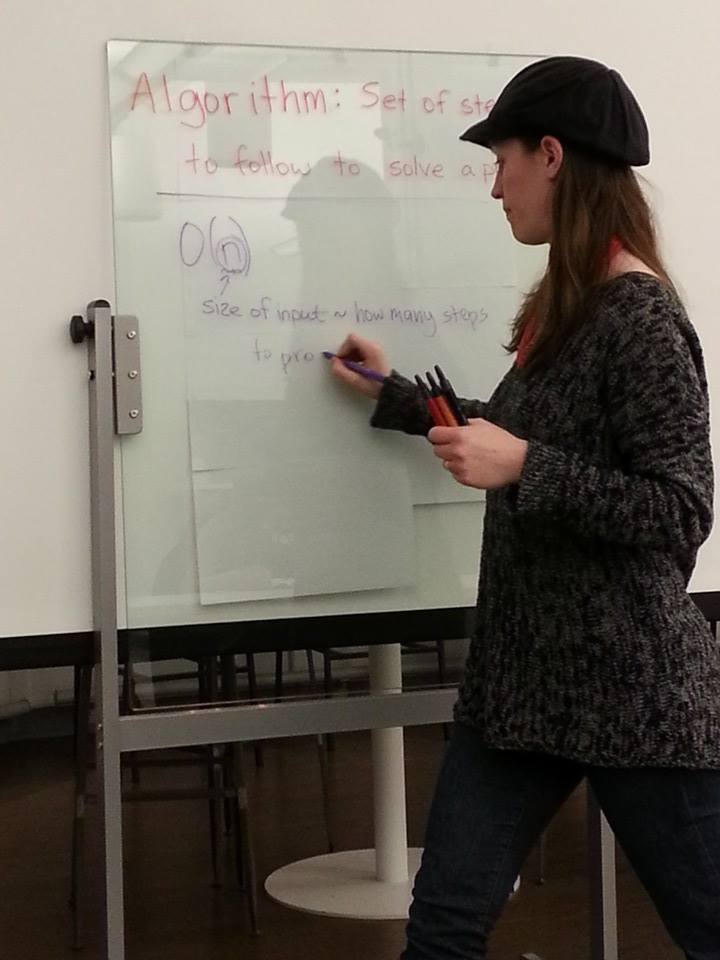 Algorithm: Set of ste
to follow to solve a p
O(n)
size of input ~ how many steps
to pro